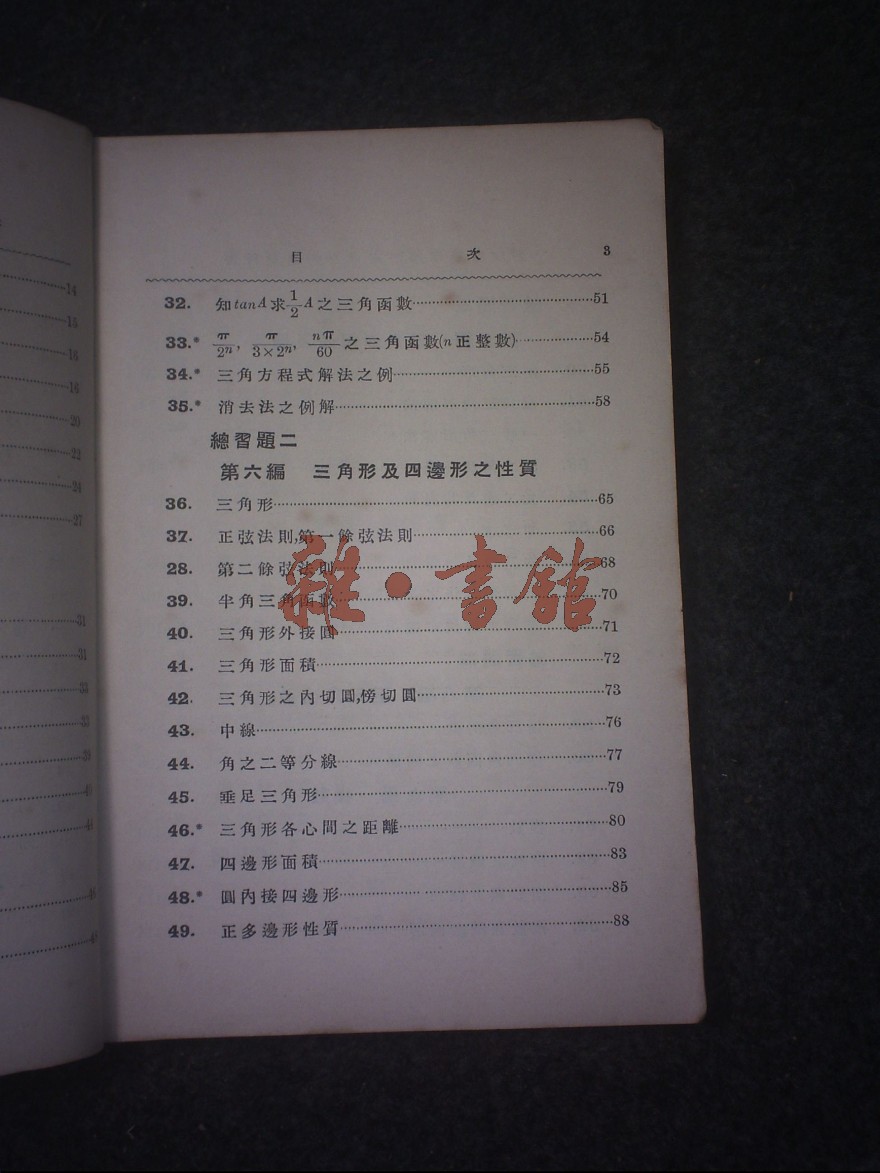 14
15
16
16
20
22
24
27
31
31
33
33
39
目 次 3
32. 知tanA求1/2A之三角函數 51
33.* π/2n, π/3×2n, nπ/60之三角函數(n正整數) 54
34.* 三角方程式解法之例 55
35.* 消去法之例解 58
總習題二
第六編 三角形及四邊形之性質
36. 三角形 65
37. 正弦法則,第一餘弦法則 66
28. 第二餘弦法則 68
39. 半角三角函數 70
40. 三角形外接圓 71
41. 三角形面積 72
42. 三角形之內切圓,傍切圓 73
43. 中線 76
44. 角之二等分線 77
45. 垂足三角形 79
46.* 三角形各心間之距離 80
47. 四邊形面積 83
48.* 圓內接四邊形 85
49. 正多邊形性質 88
雜·書館